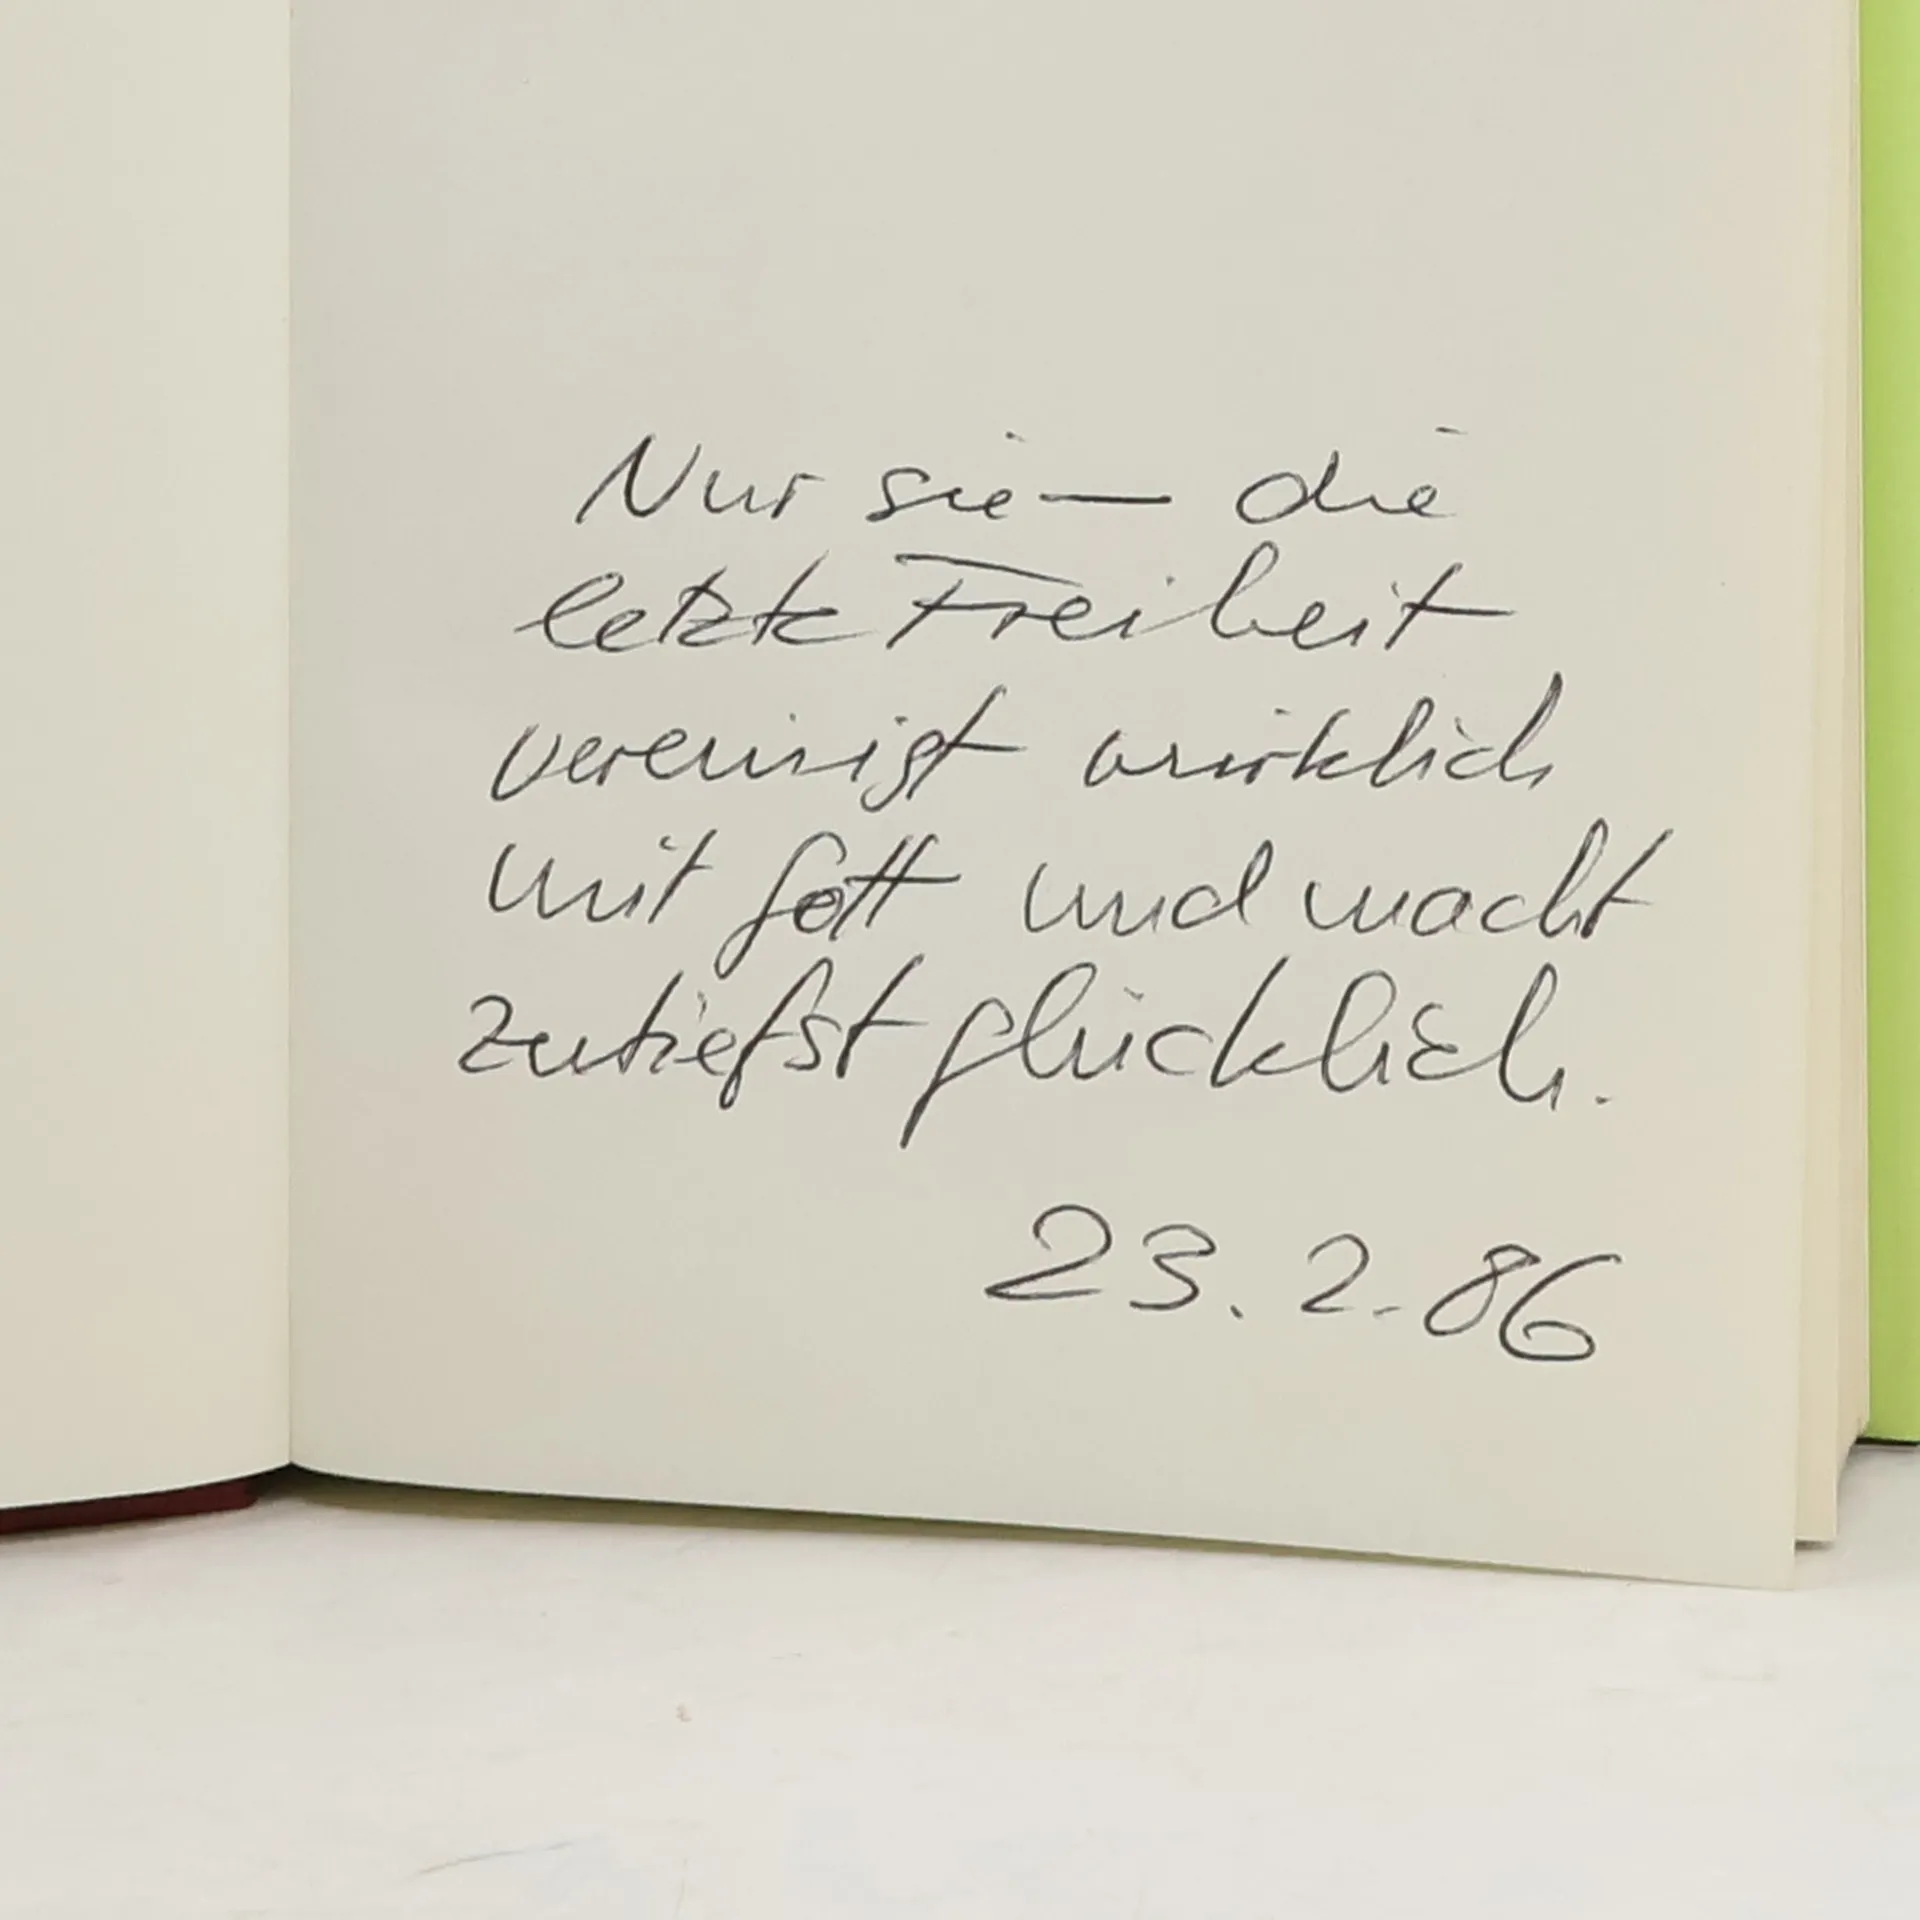 Nur sie — die
letzte Freiheit
vereinigt wirklich
mit Gott und macht
zutiefst glücklich.
23.2.86